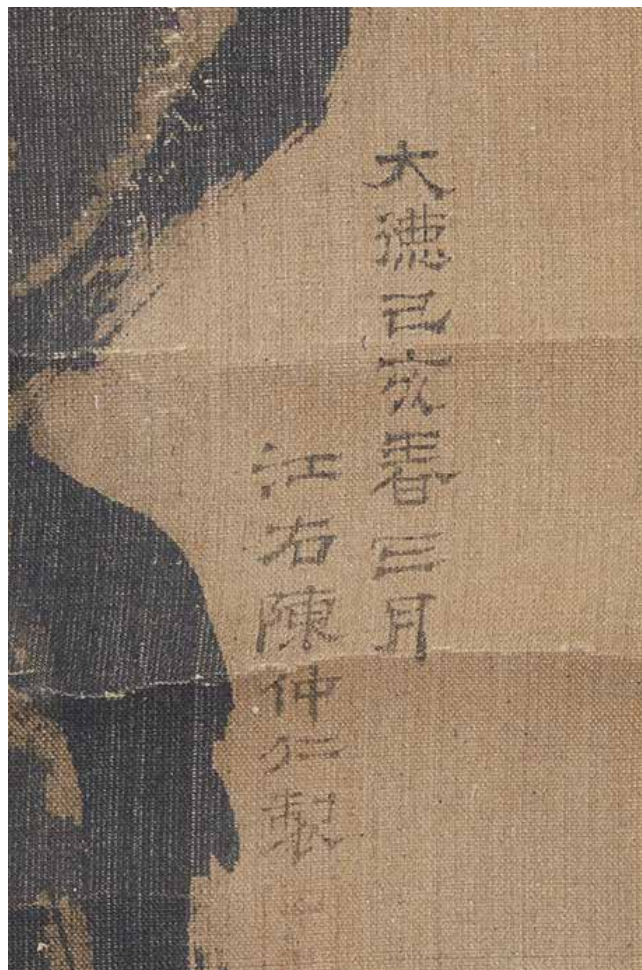 大德己亥春三月
江右陳仲仁製